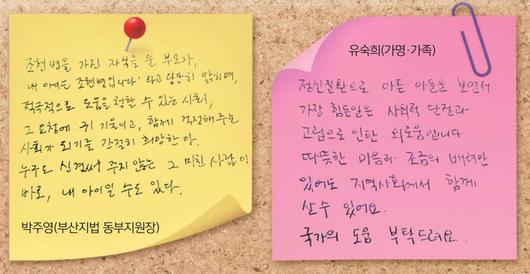 조현병을 가진 자식을 둔 부모가,
'내 아이는 조현병입니다' 라고 당당히 밝히며,
적극적으로 도움을 청할 수 있는 사회,
그 요청에 귀 기울이고, 함께 걱정해주는
사회가 되기를 간절히 희망한다.
누구도 신경써 주지 않는 그 미친 사람이
바로, 내 아이일 수도 있다.
박주영(부산지법 동부지원장)
유숙희(가명·가족)
정신질환으로 아픈 아들을 보면서
가장 힘든일은 사회적 단절과
고립으로 인한 외로움입니다
따뜻한 마음과 조금의 배려만
있어도 지역사회에서 함께
살 수 있어요.
국가의 도움 부탁드려요.